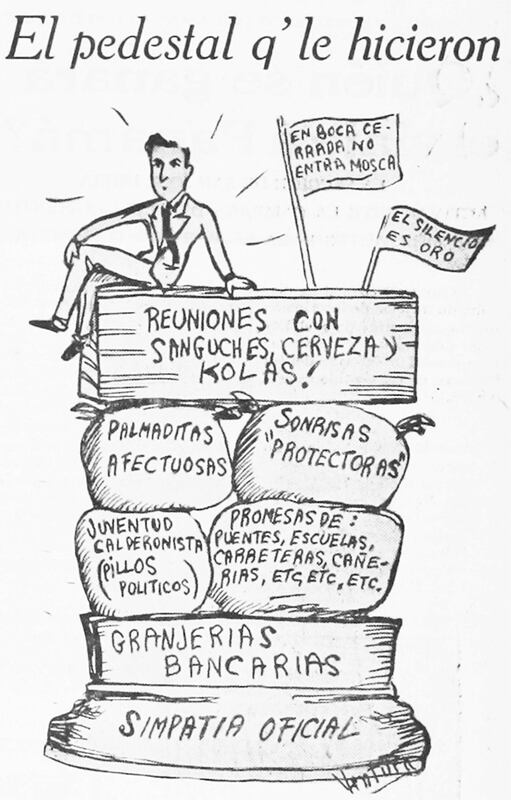 El pedestal q' le hicieron
EN BOCA CE-
RRADA NO
ENTRA MOSCA
EL SILENCIO
ES ORO
REUNIONES CON
SANGUCHES, CERVEZA Y
KOLAS!
PALMADITAS
AFECTUOSAS
SONRISAS
"PROTECTORAS"
JUVENTUD
CALDERONISTA
(PILLOS
POLITICOS)
PROMESAS DE:
PUENTES, ESCUELAS,
CARRETERAS, CAÑE-
RIAS, ETC, ETC., ETC.
GRANJERIAS
BANCARIAS
SIMPATIA OFICIAL